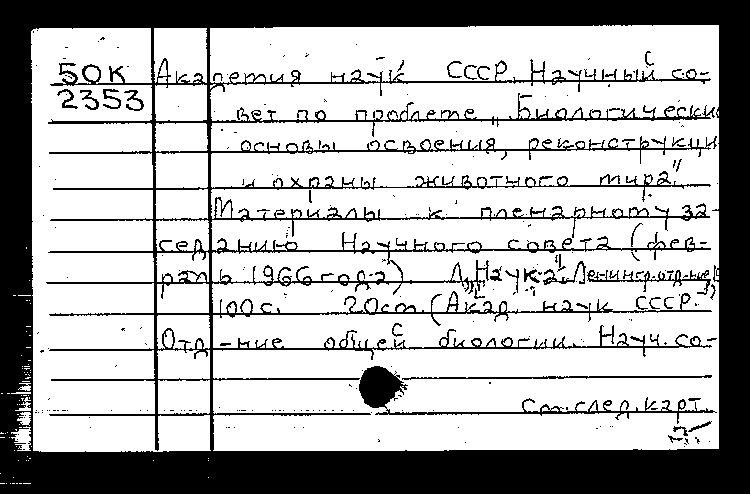 50К
2353
Академия наук СССР. Научный со-
вет по проблеме „Биологические
основы освоения, реконструкции
и охраны животного мира".
Материалы к пленарному за-
седанию Научного совета (фев-
раль 1966 года). Л., „Наука", Ленингр. отд-ние,
100 с. 20 см. (Акад. наук СССР.
Отд-ние общей биологии. Науч. со-
См. след. карт.